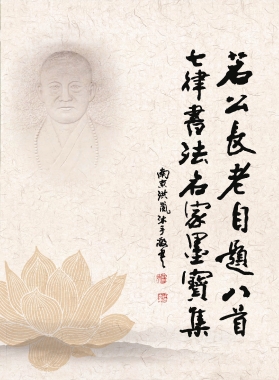 茗公長老自題八首
七律書法名家墨寶集
南京洪胤沐手敬書